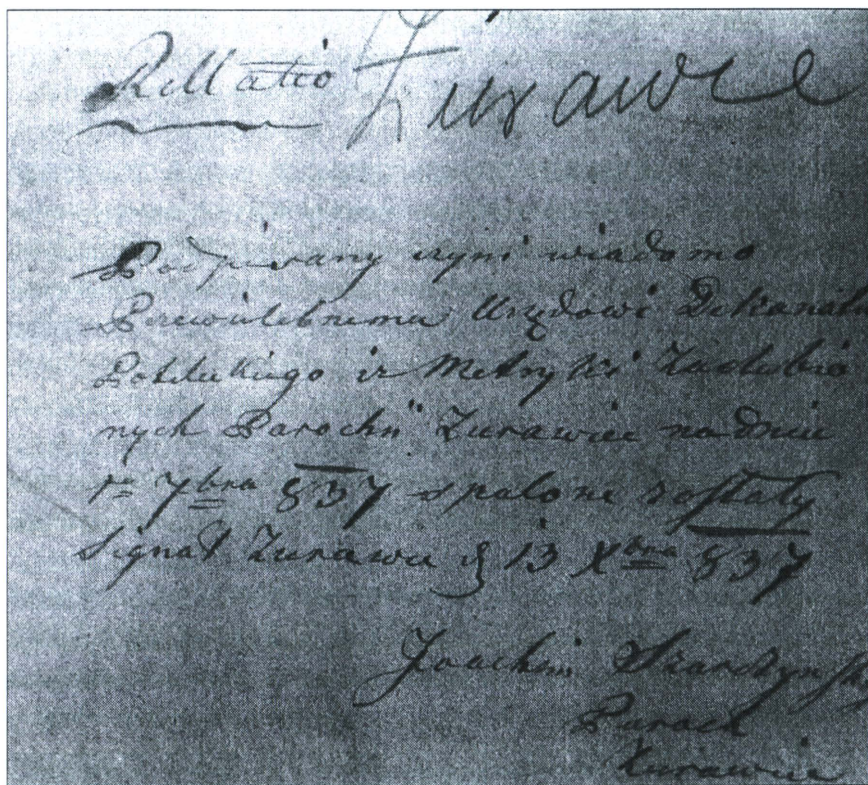 Rellatio Żurawce
Podpisany czyni wiadomo
Przewielebnemu Urzędowi Dekanal
iż Metryki Zaślubio
nych Parochii Zurawce na dniu
1o 7bra 837 spalone zostały
Signat Zurawce d 13 Xbra 837
Joachim
Paroch
Żurawce